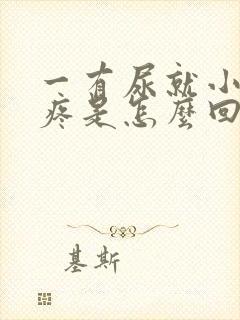 一有尿就小
疼是怎麼回
基斯